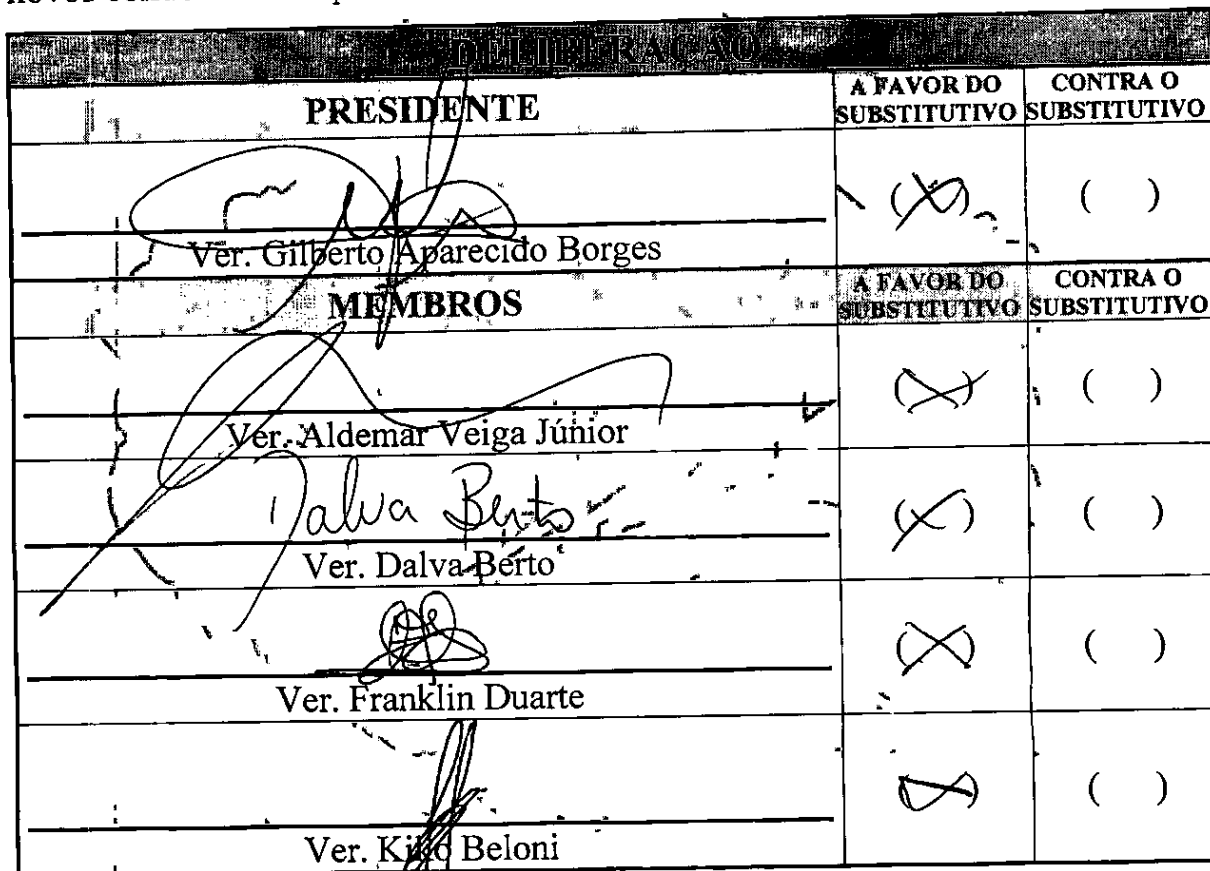 DELIBERAÇÃO
PRESIDENTE
A FAVOR DO SUBSTITUTIVO
CONTRA O SUBSTITUTIVO
(X)
( )
Ver. Gilberto Aparecido Borges
MEMBROS
A FAVOR DO SUBSTITUTIVO
CONTRA O SUBSTITUTIVO
(X)
( )
Ver. Aldemar Veiga Júnior
Dalva Berto
(X)
( )
Ver. Dalva Berto
(X)
( )
Ver. Franklin Duarte
(X)
( )
Ver. Kiko Beloni